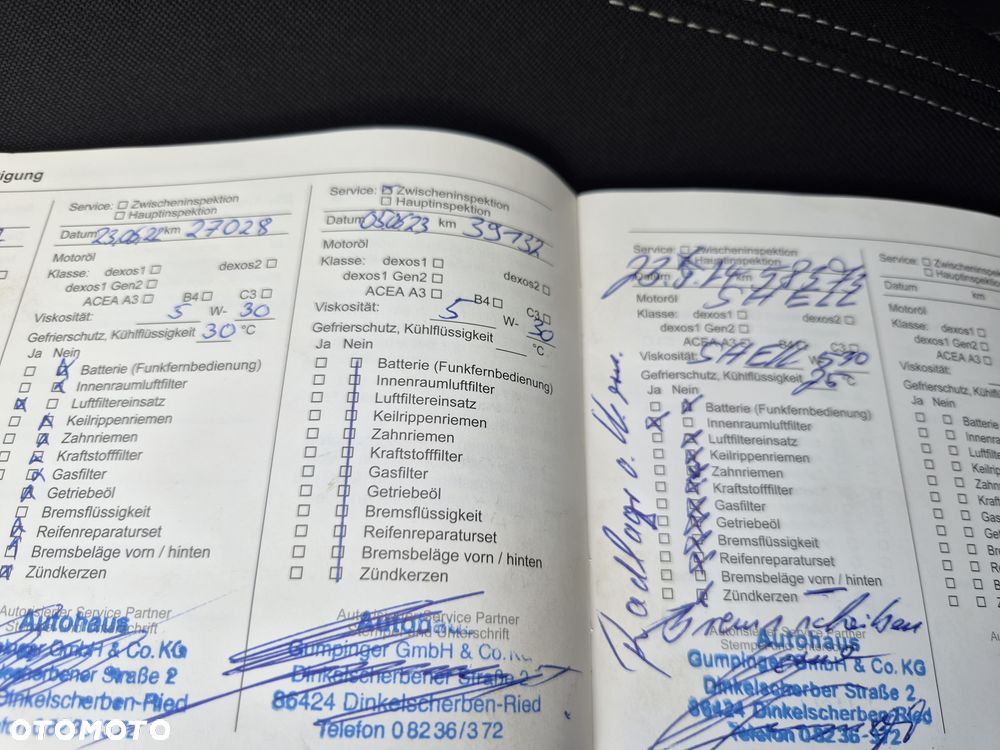 igung
Service: Zwischeninspektion
Hauptinspektion
Datum 23.06.22 km 27028
Motoröl
Klasse: dexos1 dexos2
dexos1 Gen2
ACEA A3 B4 C3
Viskosität: 5 W- 30
Gefrierschutz, Kühlflüssigkeit 30 °C
Ja Nein
Batterie (Funkfernbedienung)
Innenraumluftfilter
Luftfiltereinsatz
Keilrippenriemen
Zahnriemen
Kraftstofffilter
Gasfilter
Getriebeöl
Bremsflüssigkeit
Reifenreparaturset
Bremsbeläge vorn / hinten
Zündkerzen
Autorisierter Service Partner
Autohaus
GmbH & Co. KG
Straße 2
Dinkelscherben-Ried
Service: Zwischeninspektion
Hauptinspektion
Datum 05.06.23 km 39132
Motoröl
Klasse: dexos1
dexos1 Gen2 dexos2
ACEA A3 B4 C3
Viskosität: 5 W- 30
Gefrierschutz, Kühlflüssigkeit °C
Ja Nein
Batterie (Funkfernbedienung)
Innenraumluftfilter
Luftfiltereinsatz
Keilrippenriemen
Zahnriemen
Kraftstofffilter
Gasfilter
Getriebeöl
Bremsflüssigkeit
Reifenreparaturset
Bremsbeläge vorn / hinten
Zündkerzen
Autorisierter Service Partner
Stempel und Unterschrift
Gumpinger GmbH & Co.
Dinkelscherbener Straße 2
86424 Dinkelscherben-Ried
Telefon 08236/372
Service: Zwischeninspektion
Hauptinspektion
Datum km
Motoröl SHELL
Klasse: dexos1 dexos2
dexos1 Gen2
ACEA A3 B4 C3
Viskosität: SHELL
Gefrierschutz, Kühlflüssigkeit
Ja Nein
Batterie (Funkfernbedienung)
Innenraumluftfilter
Luftfiltereinsatz
Keilrippenriemen
Zahnriemen
Kraftstofffilter
Gasfilter
Getriebeöl
Bremsflüssigkeit
Reifenreparaturset
Bremsbeläge vorn / hinten
Zündkerzen
Bremsscheiben
Autorisierter Service Partner
Autohaus
Gumpinger GmbH & Co. KG
Dinkelscherber Straße 2
86424 Dinkelscherben-Ried
Telefon 08236-372
Service: Zwischeninspe
Hauptinspektion
Datum km
Motoröl
Klasse: dexos1
dexos1 Gen2
ACEA A3
Viskosität:
Gefrierschutz, Kühlflüss
Ja Nein
Batterie
Innenra
Luftfilt
Keilrip
Zahn
Kraft
Gas
Ge
Br
Re
B
Z
OTOMOTO